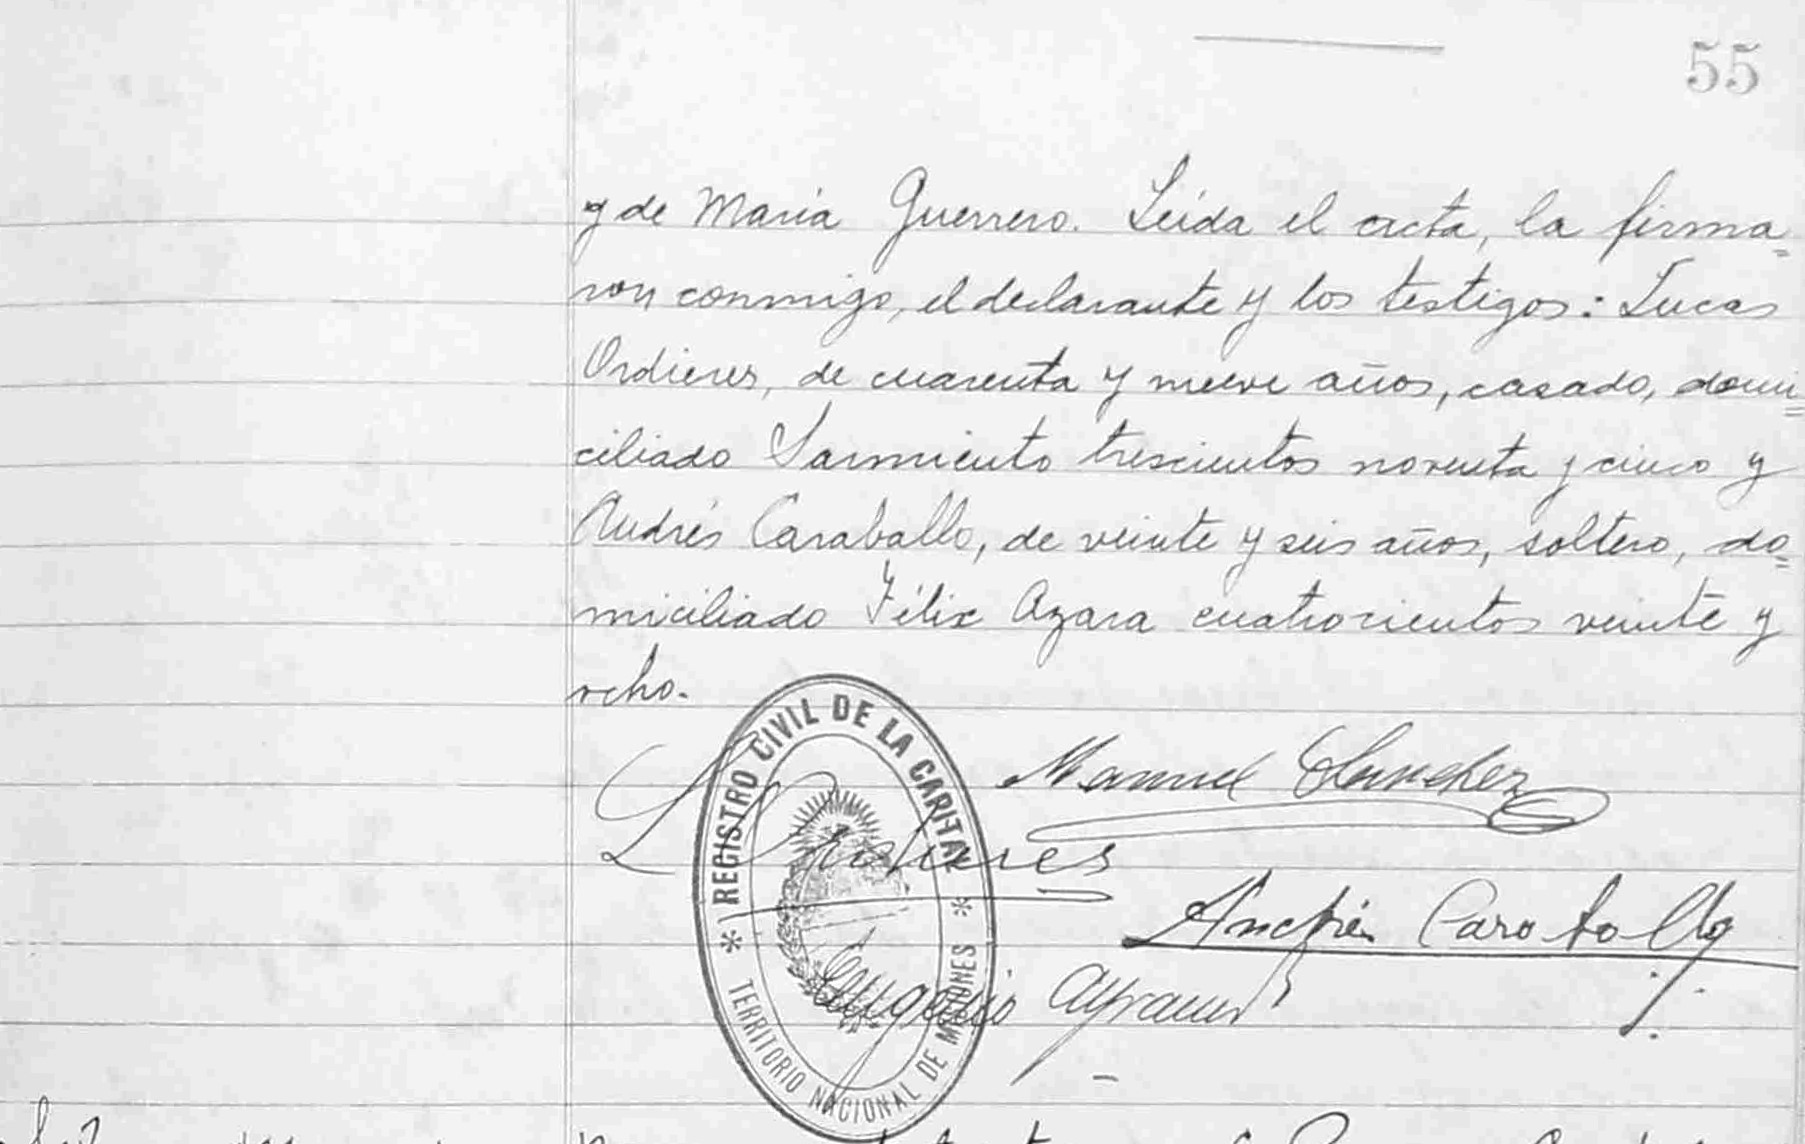 55
y de María Guerrero. Leída el acta, la firma=
ron conmigo, el declarante y los testigos: Lucas
Ordieres, de cuarenta y nueve años, casado, domi=
ciliado Sarmiento trescientos noventa y cinco y
Andrés Caraballo, de veinte y seis años, soltero, do=
miciliado Félix Azara cuatrocientos veinte y
ocho.
REGISTRO CIVIL DE LA CAPITAL
Manuel Sanchez
L Ordieres
Andrés Caraballo
Eugenio
* TERRITORIO NACIONAL DE MISIONES *